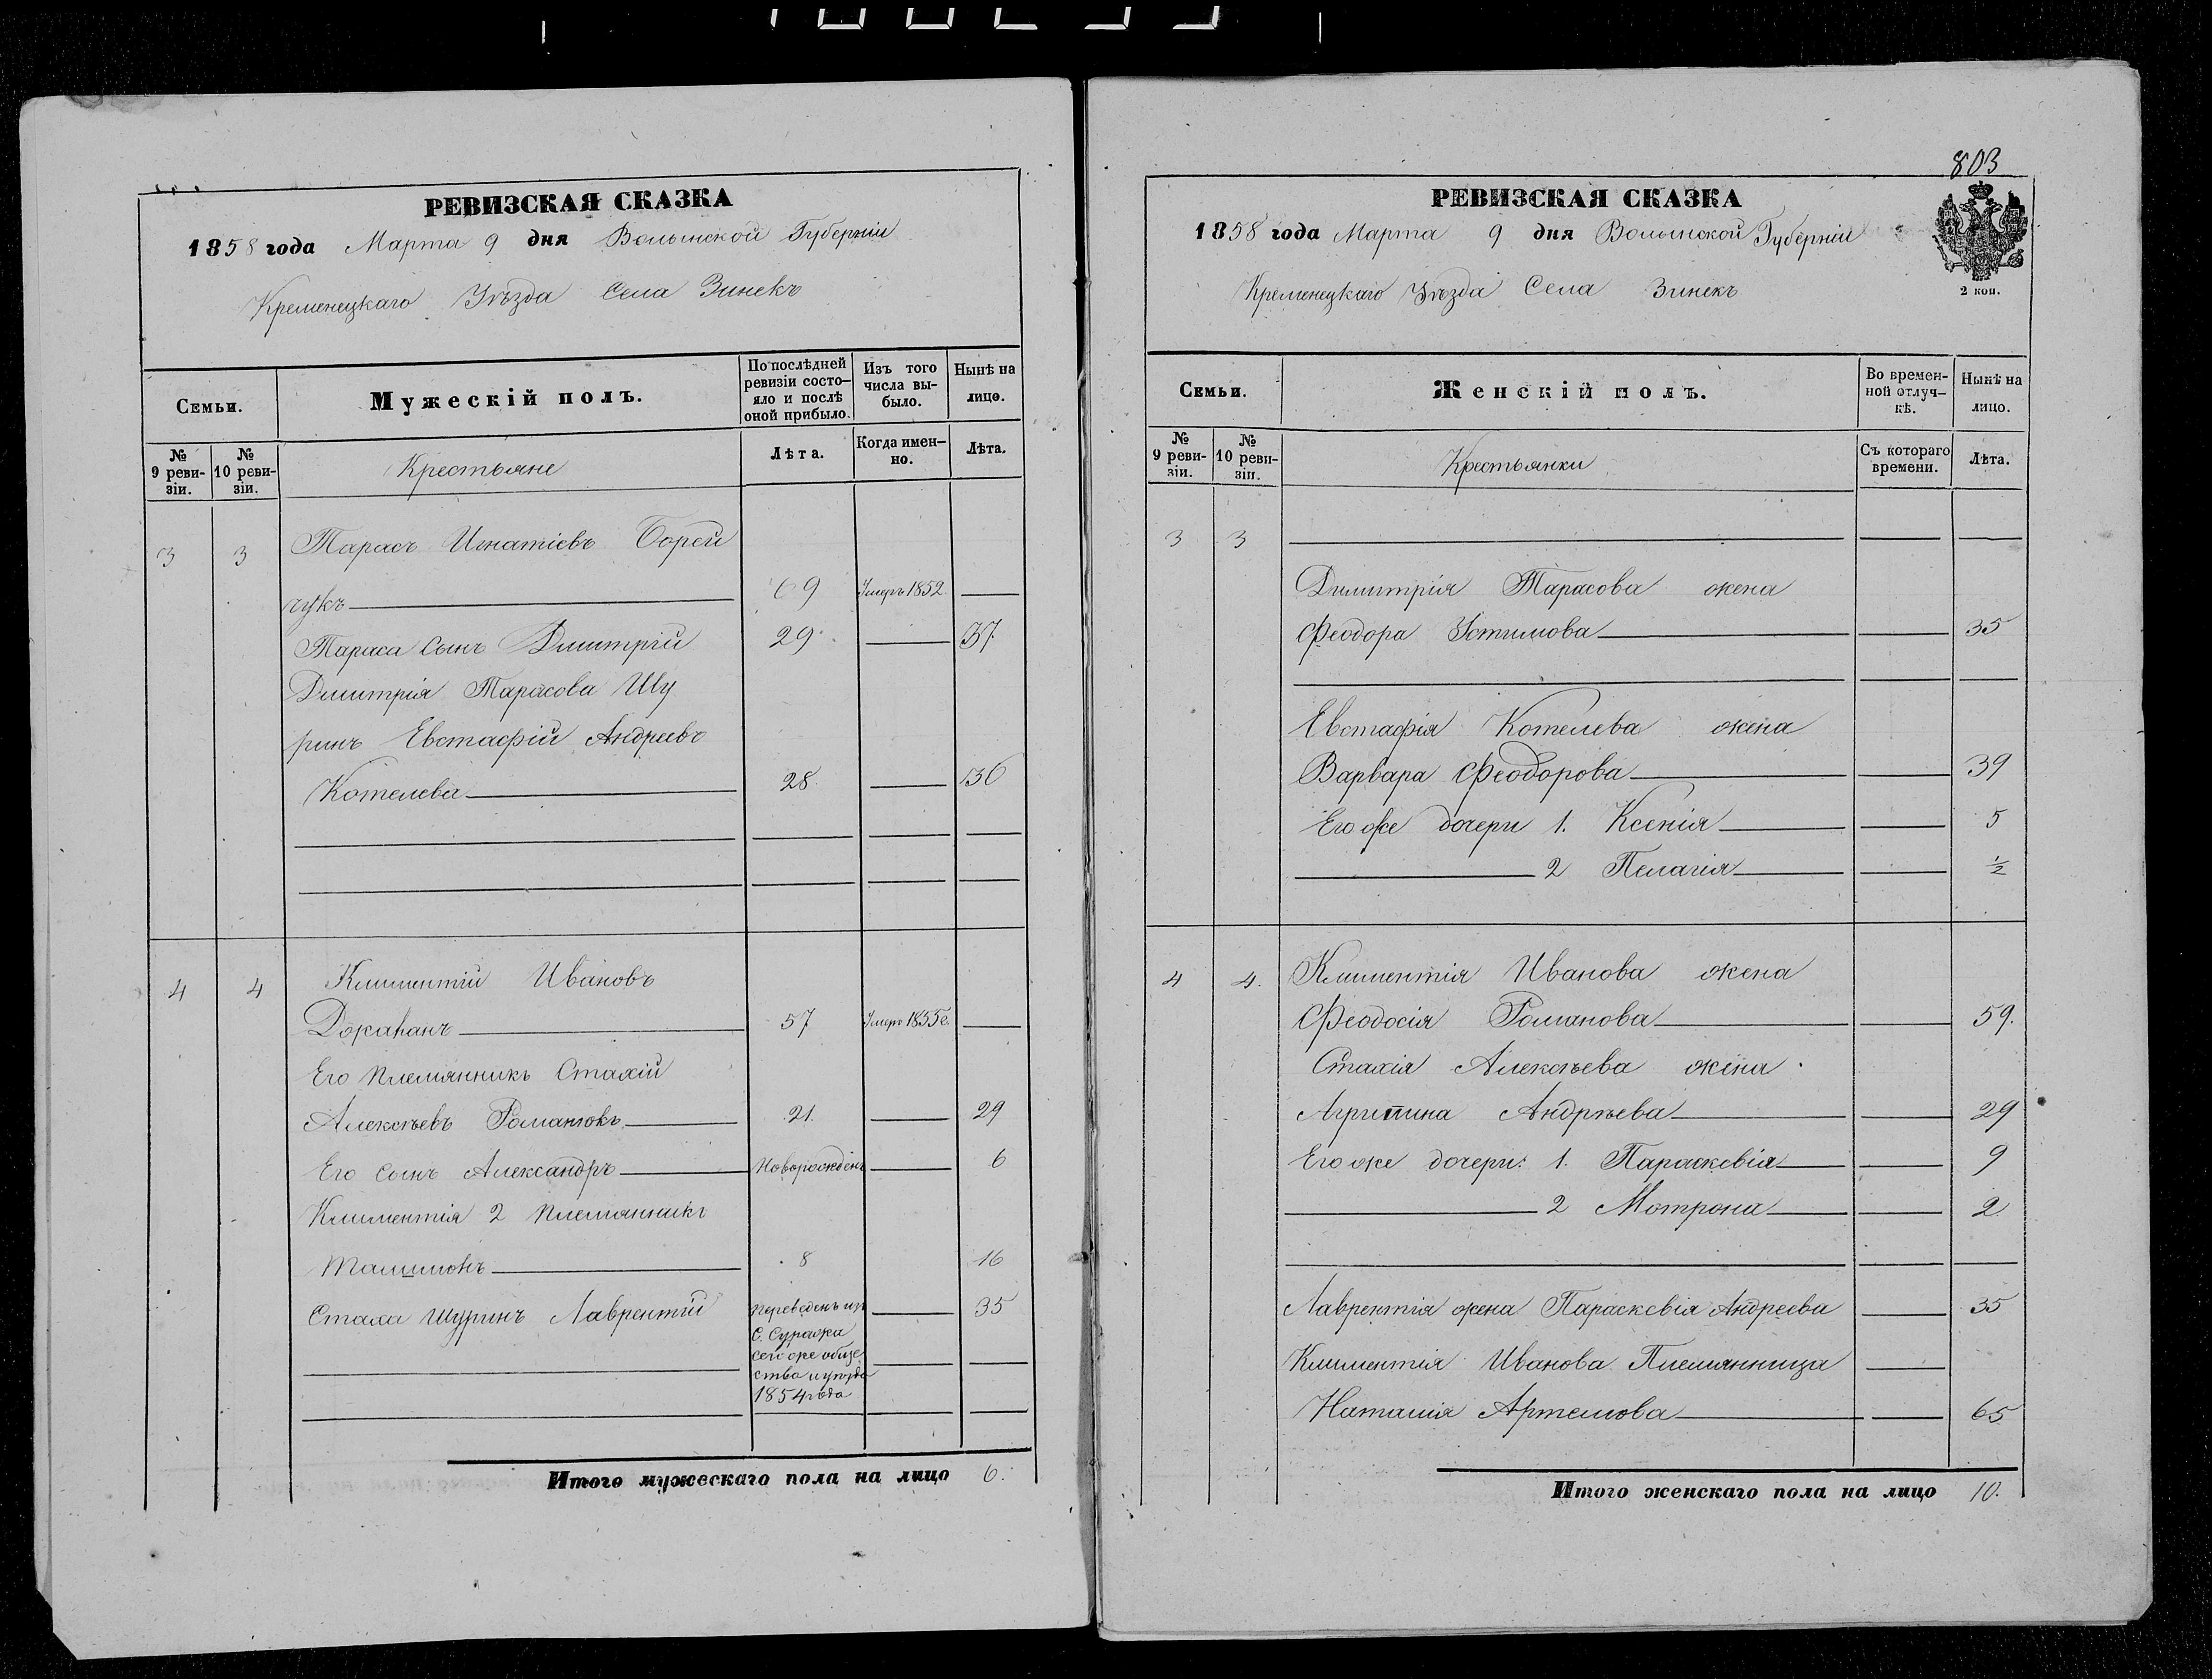 РЕВИЗСКАЯ СКАЗКА
1858 года Марта 9 дня Волынской Губерніи
Кременецкаго Уѣзда Села Зинекъ
Семьи.
Мужескій полъ.
По послѣдней ревизіи состо-
яло и послѣ
оной прибыло.
Изъ того
числа вы-
было.
Нынѣ на
лицо.
№
9 реви-
зіи.
№
10 реви-
зіи.
Крестьяне
Лѣта.
Когда имен-
но.
Лѣта.
3 3 Тарасъ Игнатіевъ Борей
чукъ 69 Умеръ 1852
Тараса сынъ Дмитрій 29 37
Дмитрія Тарасова Шу
ринъ Евстафій Андреевъ
Котелева 28 36
4 4 Климентій Ивановъ
57 Умеръ 1855
Его племянникъ Стахій
Алексѣевъ Романюкъ 21 29
Его сынъ Александръ Новорожденъ 6
Климентія 2 племянникъ
8 16
Стаха шуринъ Лаврентій Переведенъ изъ 35
С. Суража
сего же обще
ства и уѣзда
1854 года
Итого мужескаго пола на лицо 6.
803
РЕВИЗСКАЯ СКАЗКА
1858 года Марта 9 дня Волынской Губерніи
2 коп.
Кременецкаго Уѣзда Села Зинекъ
Семьи.
Женскій полъ.
Во времен-
ной отлуч-
кѣ.
Нынѣ на
лицо.
№
9 реви-
зіи.
№
10 реви-
зіи.
Крестьянки
Съ котораго
времени.
Лѣта.
3 3
Димитрія Тарасова жена
Феодора Устимова 35
Евстафія Котелева жена
Варвара Феодорова 39
Его же дочери 1. Ксенія 5
2 Пелагія ½
4 4. Климентія Иванова жена
Феодосія Романова 59.
Стахія Алексѣева жена
Агрипина Андрѣева 29
Его же дочери: 1. Параскевія 9
2 Мотрона 2
Лаврентія жена Параскевія Андреева 35
Климентія Иванова Племянница
Наталія Артемова 65
Итого женскаго пола на лицо 10.